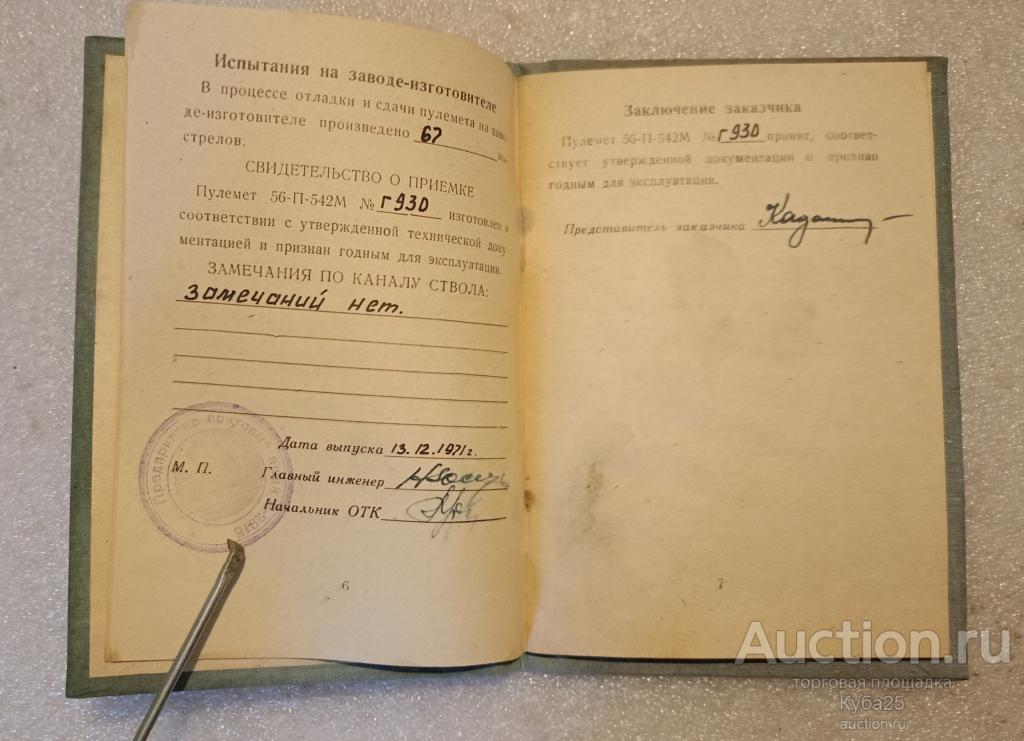 Испытания на заводе-изготовителе
В процессе отладки и сдачи пулемета на заво
де-изготовителе произведено 67
стрелов.
СВИДЕТЕЛЬСТВО О ПРИЕМКЕ
Пулемет 56-П-542М № г930 изготовлен в
соответствии с утвержденной технической доку
ментацией и признан годным для эксплуатации.
ЗАМЕЧАНИЯ ПО КАНАЛУ СТВОЛА:
Замечаний нет.
Предприятие почтовый
М. П.
Дата выпуска 13.12.1971г.
Главный инженер
Начальник ОТК
6
Заключение заказчика
Пулемет 56-П-542М № г930 принят, соответ-
ствует утвержденной документации и признан
годным для эксплуатации.
Представитель заказчика
7
Auction.ru
торговая площадка
Куба25
auction.ru